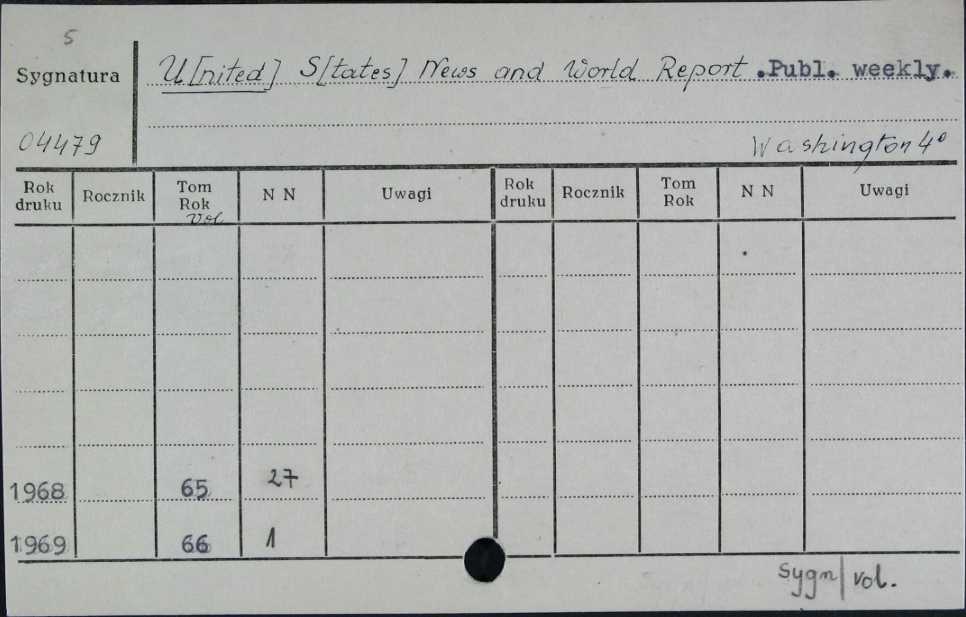 5
Sygnatura U[nited] S[tates] News and World Report .Publ. weekly.
04479 Washington 4°
Rok druku Rocznik Tom Rok Vol N N Uwagi Rok druku Rocznik Tom Rok N N Uwagi
1968 65 27
1969 66 1
sygn/vol.